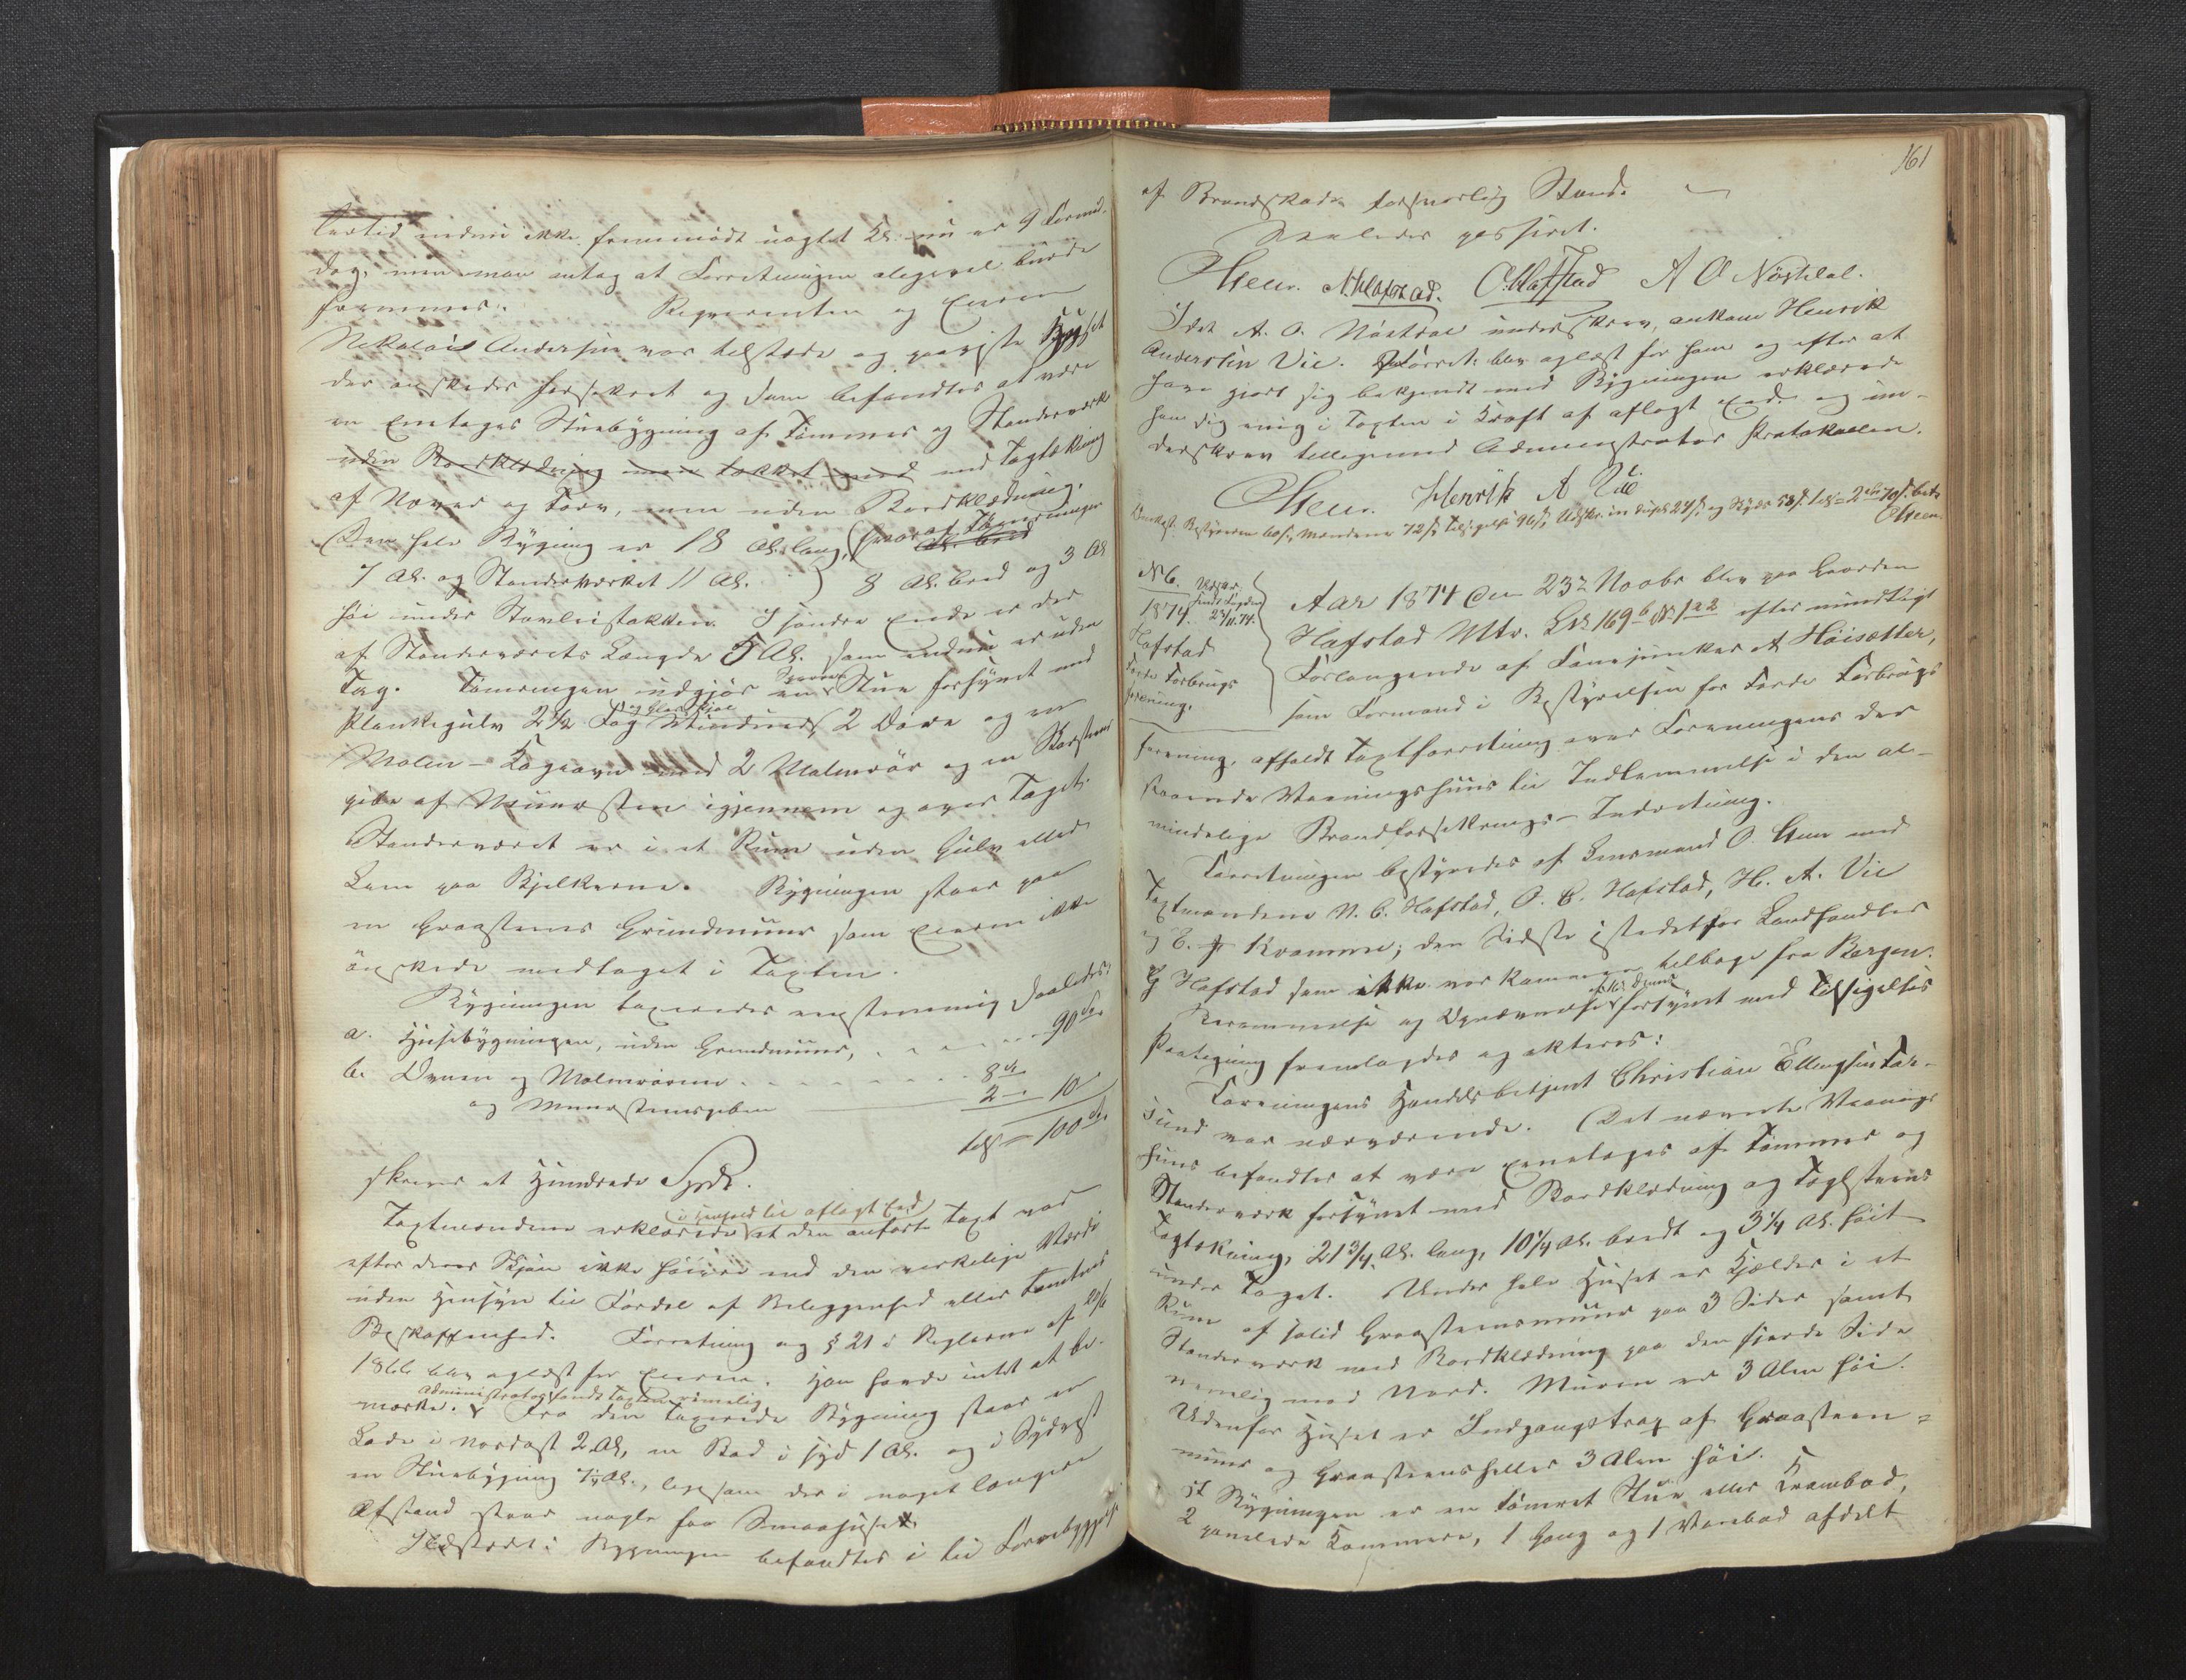 endnu ikke fremmødt uagtet Kl. nu er 9 Formid-
dag, men man antog at Forretningen alligevel burde
fremmes. Reqvirenten og Eieren
Nikolai Andersen var tilstede og paaviste Huset
der ønskedes forsikret og som befandtes at være
en Eenetages Stuebygning af Tømmer og Standerværk
uden Bordklædning men takket med med Tagtækning
af Næver og Torv, men uden Bordklædning.
Den hele Bygning er 18 Al. lang, (hvoraf Tømmeringen
7 Al. og Standerværket 11 Al.) 8 Al. bred og 3 Al
høi under Stavleistokken. I søndre Ende er der
af Standerværkets Længde 5 Al. som endnu er uden
Tag. Tømringen udgjør en Stue forsynet med
Plankegulv 2½ Fag Vinduer, 2 Døre og en
Malm-Kogeovn med 2 Malmrør og en Skorsteens
pibe af Muursteen igjennem og over Taget.
Standerværket er i et Rum uden Gulv eller
Lem paa Bjelkerne. Bygningen staar paa
en Graasteens Grundmuur som Eieren ikke
ønskede medtaget i Taxten.
Bygningen taxeredes eenstemmig saaledes:
a. Husebygningen, uden Grundmuur, 90 Sp.
b. Ovnen og Malmrørene 8 Sp
og Muursteenspiben 2 - 10
tils = 100 Sp.
skriver et Hundrede Spdr.
i Henhold til aflagt Eed
Taxtmændene erklærede at den anførte Taxt var
efter deres Skjøn ikke høiere end den virkelige Værdi
uden Hensyn til Fordel af Beliggenhed eller Tomtens
Beskaffenhed. Forretning og § 21 i Reglerne af 20/6
1866 blev oplæst for Eieren. Han havde intet at be-
Administrator fandt Taxten rimelig
mærke. Fra den taxerede Bygning staar en
Lade i Nordost 2 Al, en Bod i Syd 1 Al. og i Sydvest
en Stuebygning 7½ Al., ligesom der i noget længere
Afstand staar nogle faa Smaahuse.
Ildstedet i Bygningen befandtes i til Forebyggelse
161
af Brandskade forsvarlig Stand.
Saaledes passeret.
OSteen. N. Hafstad. O. Hafstad A O Nøstdal.
Idet A. O. Nøstdal underskrev, ankom Henrik
Anderssen Vie. Forretn. blev oplæst for ham og efter at
have gjort sig bekjendt med Bygningen erklærede
han sig enig i Taxten i Kraft af aflagt Eed og un-
derskrev tilligemed Administrator Protokollen.
OSteen. Henrik A Vie
OSteen.
N 6.
1874.
23/11.74.
Hafstad
Førde Forbrugs
forening.
Aar 1874 den 23de Novbr blev paa Gaarden
Hafstad Mtr. 169 b N 1 efter mundtligt
Forlangende af Fanejunker A Høisætter,
som Formand i Bestyrelsen for Førde Forbrugs
forening, afholdt Taxtforretning over Foreningens der
staaende Vaaningshuus til Indlemmelse i den al-
mindelige Brandforsikrings-Indretning.
Forretningen bestyredes af Lensmand O. Steen med
Taxtmændene N. C. Hafstad, O. C. Hafstad, H. A. Vie
og C. Kramme; den Sidste istedetfor Landhandler
Hafstad som ikke var kommen tilbage fra Bergen.
Berammelse og Opnævnelse forsynet med Tilsigelses
Paategning fremlagdes og akteres:
Foreningens Handelsbetjent Christian Ellingsen Far-
sund var nærværende. Det nævnte Vaanings
huus befandtes at være Eenetages af Tømmer og
Standerværk forsynet med Bordklædning og Taglsteens
Tagtækning, 21¾ Al. lang, 10¼ Al. bredt og 3¼ Al. høit
under Taget. Under hele Huset er Kjælder i et
Rum af solid Graasteensmuur paa 3 Sider samt
Standerværk med Bordklædning paa den fjerde Side
nemlig mod Nord. Muren er 3 Alen høi.
Udenfor Huset er Indgangstrap af Graasteen-
muur og Graasteensheller 3 Alen høi.
Bygningen er en tømret Stue eller Krambod,
2 panelede Kammere, 1 Gang og 1 Varebod afdelt